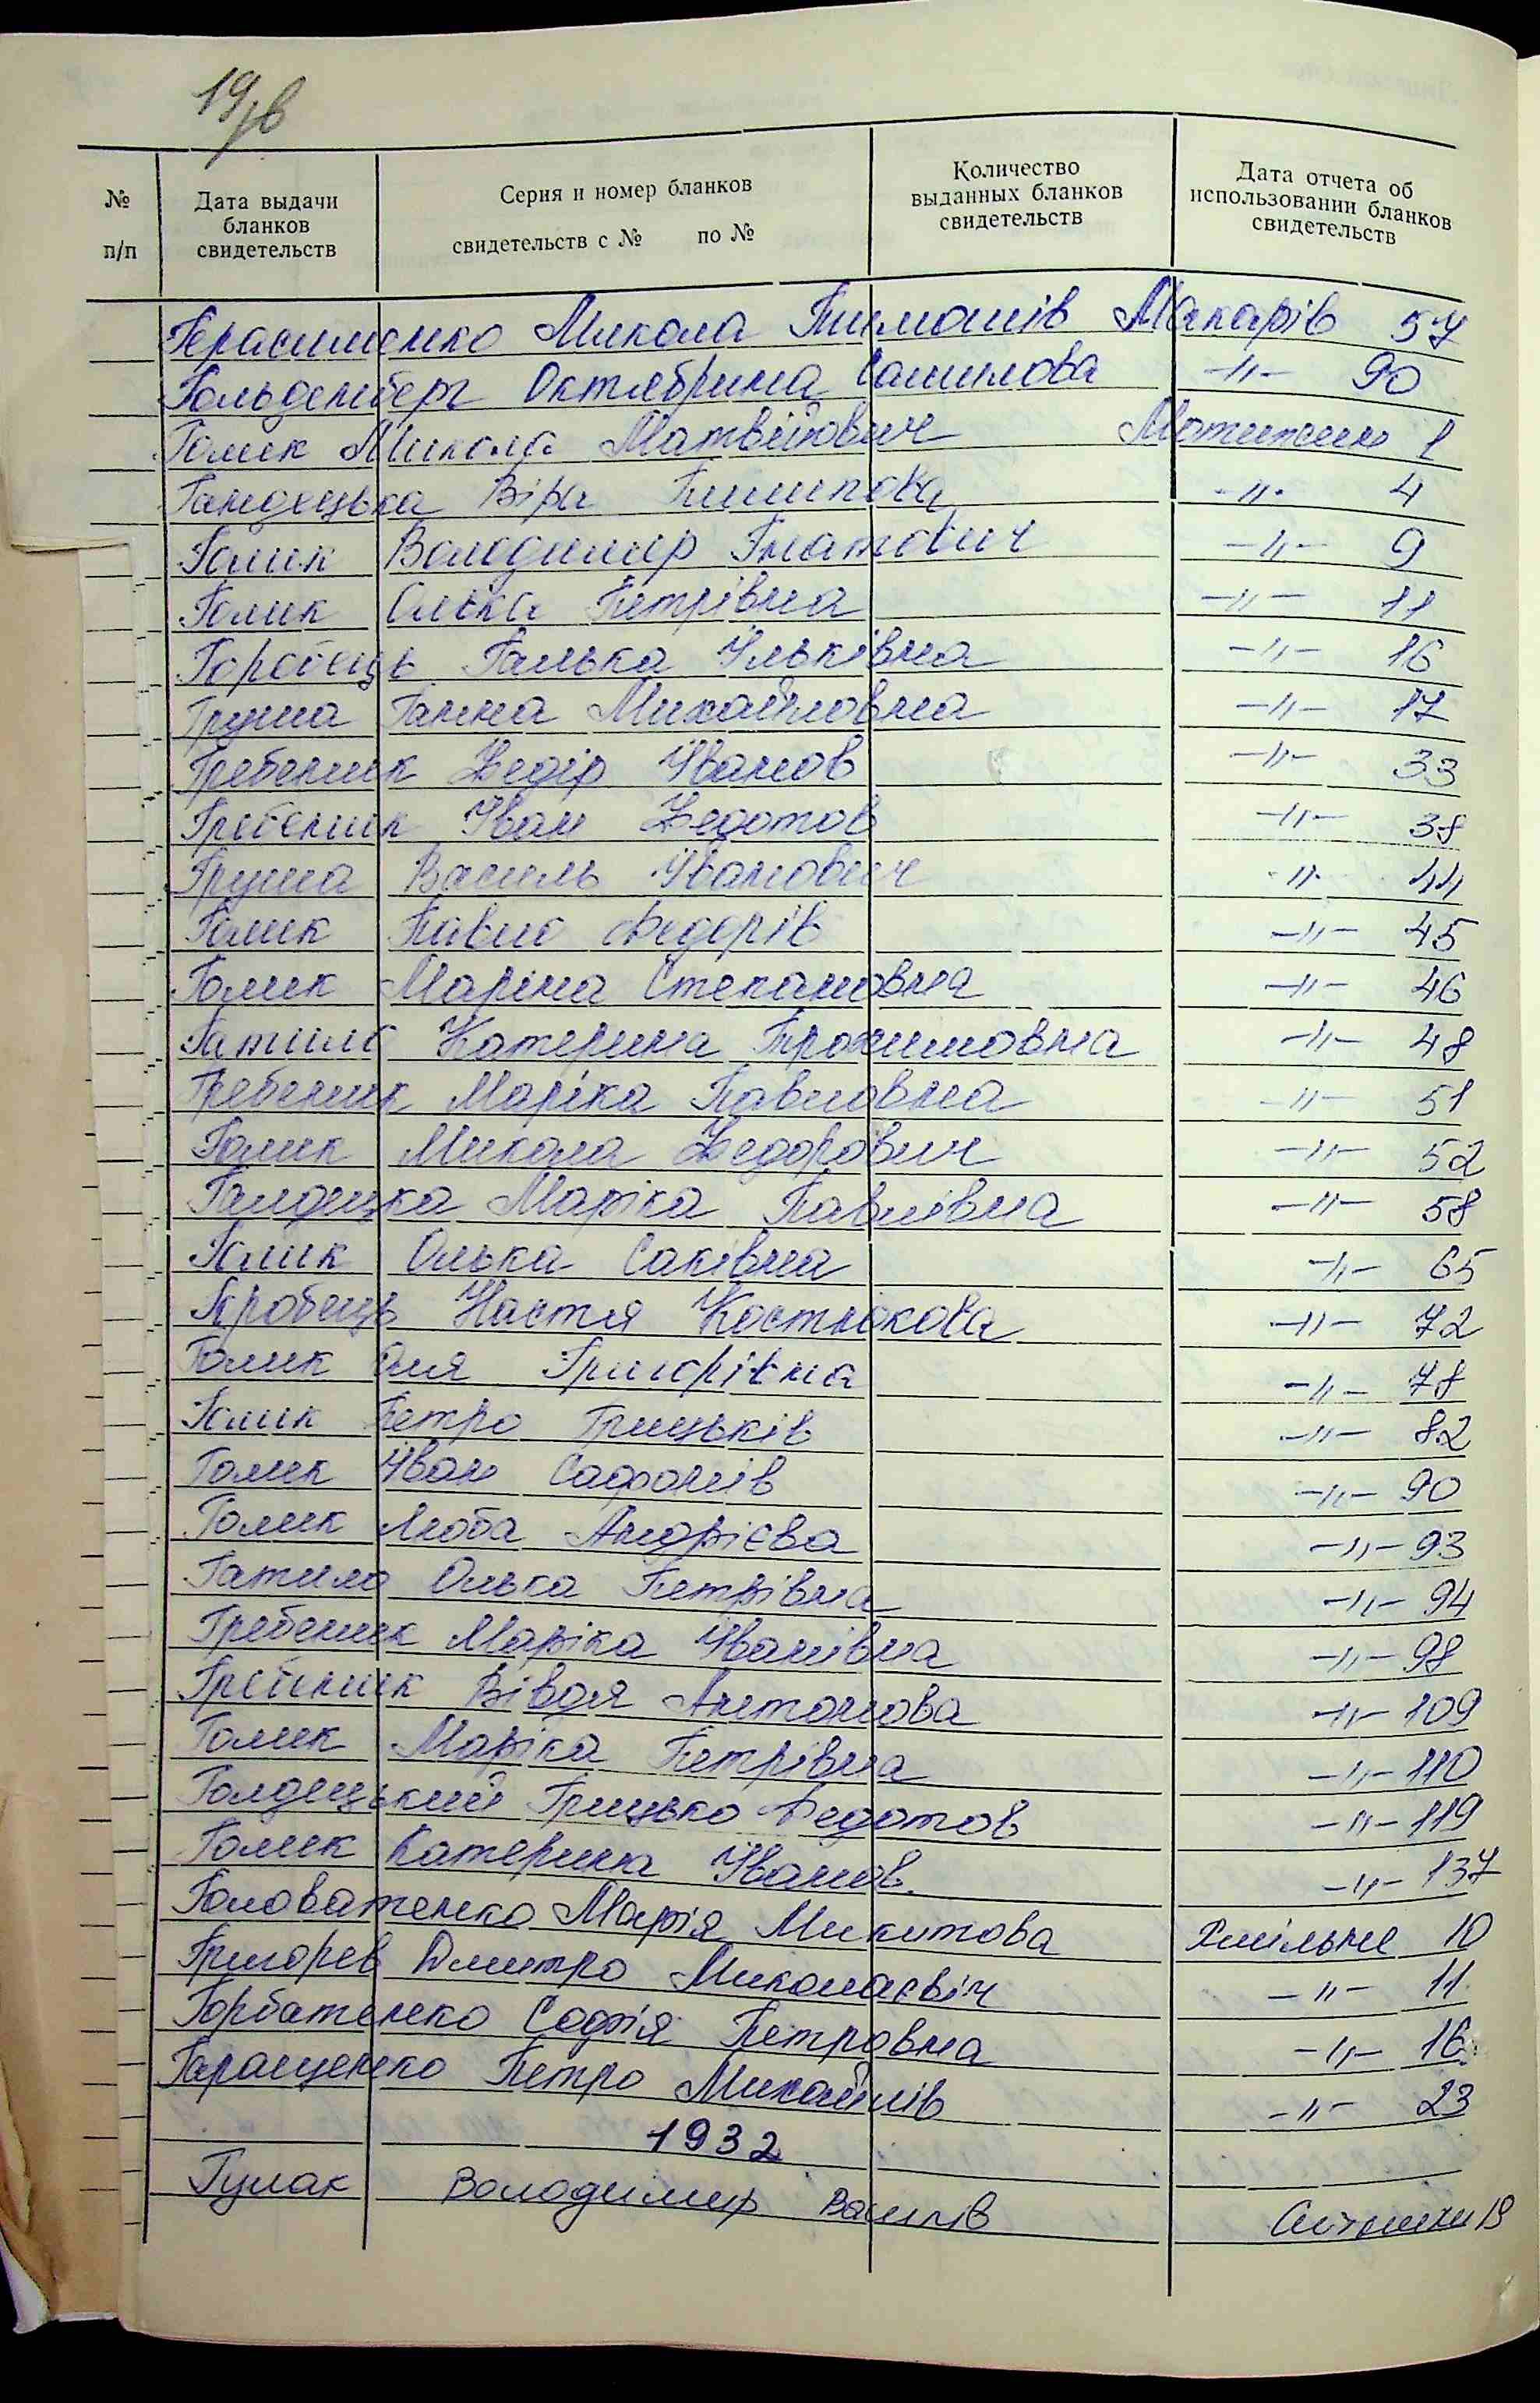 19/в
№ п/п
Дата выдачи бланков свидетельств
Серия и номер бланков свидетельств с № по №
Количество выданных бланков свидетельств
Дата отчета об использовании бланков свидетельств
Герасименко Микола Тимошів Макарів 57
Гольденберг Октябрина Самилова -"- 90
Голик Микола Матвійович Мотижин 1
Гандецька Віра Пилипова -"- 4
Голик Володимир Гнатович -"- 9
Голик Олька Петрівна -"- 11
Горобець Галька Ільківна -"- 16
Груша Ганна Михайловна -"- 17
Гребеник Федір Іванов -"- 33
Гребеник Іван Федотов -"- 38
Груша Василь Іванович -"- 44
Голик Павло Федорів -"- 45
Голик Маріна Степановна -"- 46
Гатило Катерина Трохимовна -"- 48
Гребеник Маріка Павловна -"- 51
Голик Микола Федорович -"- 52
Гандецка Маріка Павлівна -"- 58
Голик Олька Саківна -"- 65
Гробець Настя Костюкова -"- 72
Голик Оля Григорівна -"- 78
Голик Петро Грицьків -"- 82
Голик Іван Сафонів -"- 90
Голик Люба Андрієва -"- 93
Гатило Олька Петрівна -"- 94
Гребеник Маріка Іванівна -"- 98
Гребеник Вівдя Антонова -"- 109
Голик Маріка Петрівна -"- 110
Голдецький Грицько Федотов -"- 119
Голик Катерина Іванов. -"- 137
Головатенко Марія Микитова Хмільне 10
Григорев Дмитро Миколаєвіч -"- 11
Горбатенко Софія Петровна -"- 16
Геращенко Петро Михайлів -"- 23
1932
Гулак Володимир Василів 18